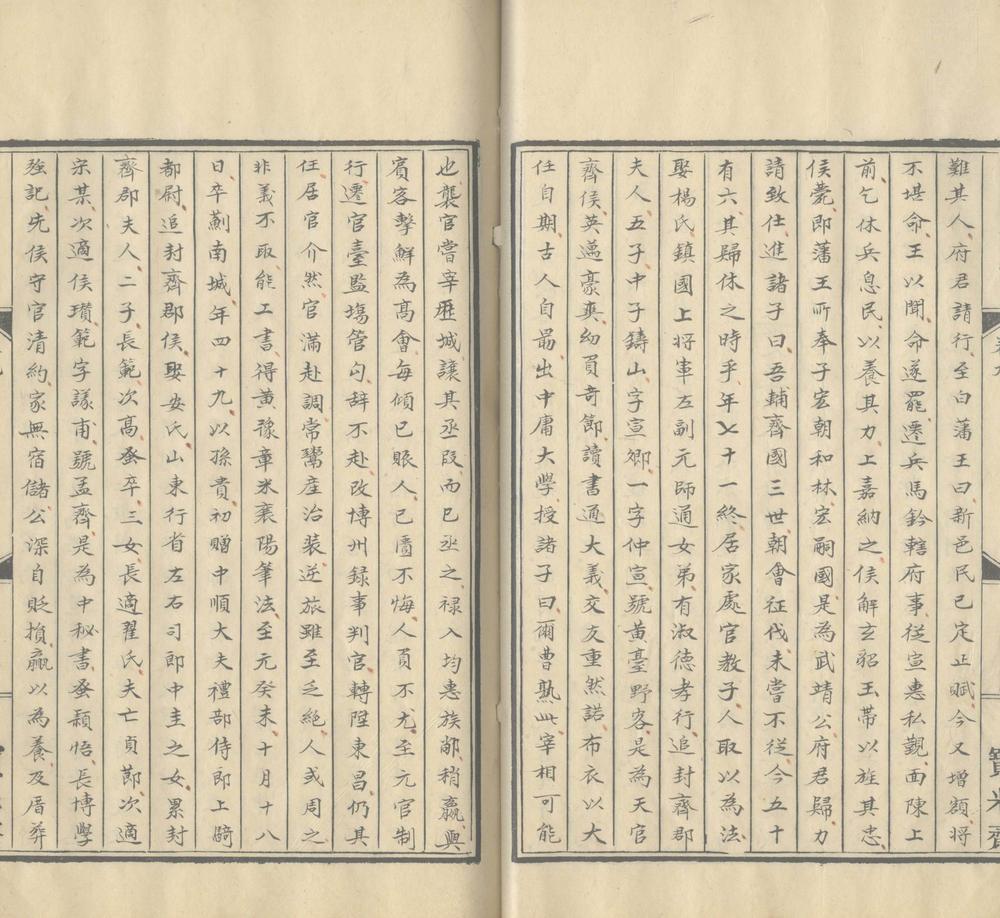 難其人府君請行至白藩王曰新邑民已定正賦今又增額將
不堪命王以聞命遂罷遷兵馬鈐轄府事從宣惠私覿面陳上
前乞休兵息民以養其力上嘉納之侯解玄貂玉帶以旌其忠
侯薨即藩王所奉子宏朝和林宏嗣國是為武靖公府君歸力
請致仕進諸子曰吾輔齊國三世朝會征伐未嘗不從今五十
有六其歸休之時乎年七十一終居家處官教子人取以為法
娶楊氏鎮國上將軍左副元師通女弟有淑德孝行追封齊郡
夫人五子中子鑄山字宣卿一字仲宣號黃臺野客是為天官
齊侯英邁豪爽幼負奇節讀書通大義交友重然諾布衣以大
任自期古人自勗出中庸大學授諸子曰爾曹熟此宰相可能
也襲官嘗宰歷城讓其丞段而已丞之祿入均惠族鄰稍羸與
賓客擊鮮為髙會每傾已賑人已匱不悔人負不尤至元官制
行遷官臺監塲管勾辞不赴改博州録事判官轉陞東昌仍其
任居官介然官滿赴調常鬻産治装逆旅雖至乏絶人或周之
非義不取能工書得黃豫章米襄陽筆法至元癸未十月十八
日卒薊南城年四十九以孫貴初贈中順大夫禮部侍郎上騎
都尉追封齊郡侯娶安氏山東行省左右司郎中圭之女累封
齊郡夫人二子長範次髙蚤卒三女長適翟氏夫亡貞節次適
宋某次適侯瓚範字謙甫號孟齊是為中秘書蚤穎悟長博學
強記先侯守官清約家無宿儲公深自貶損羸以為養及厝葬